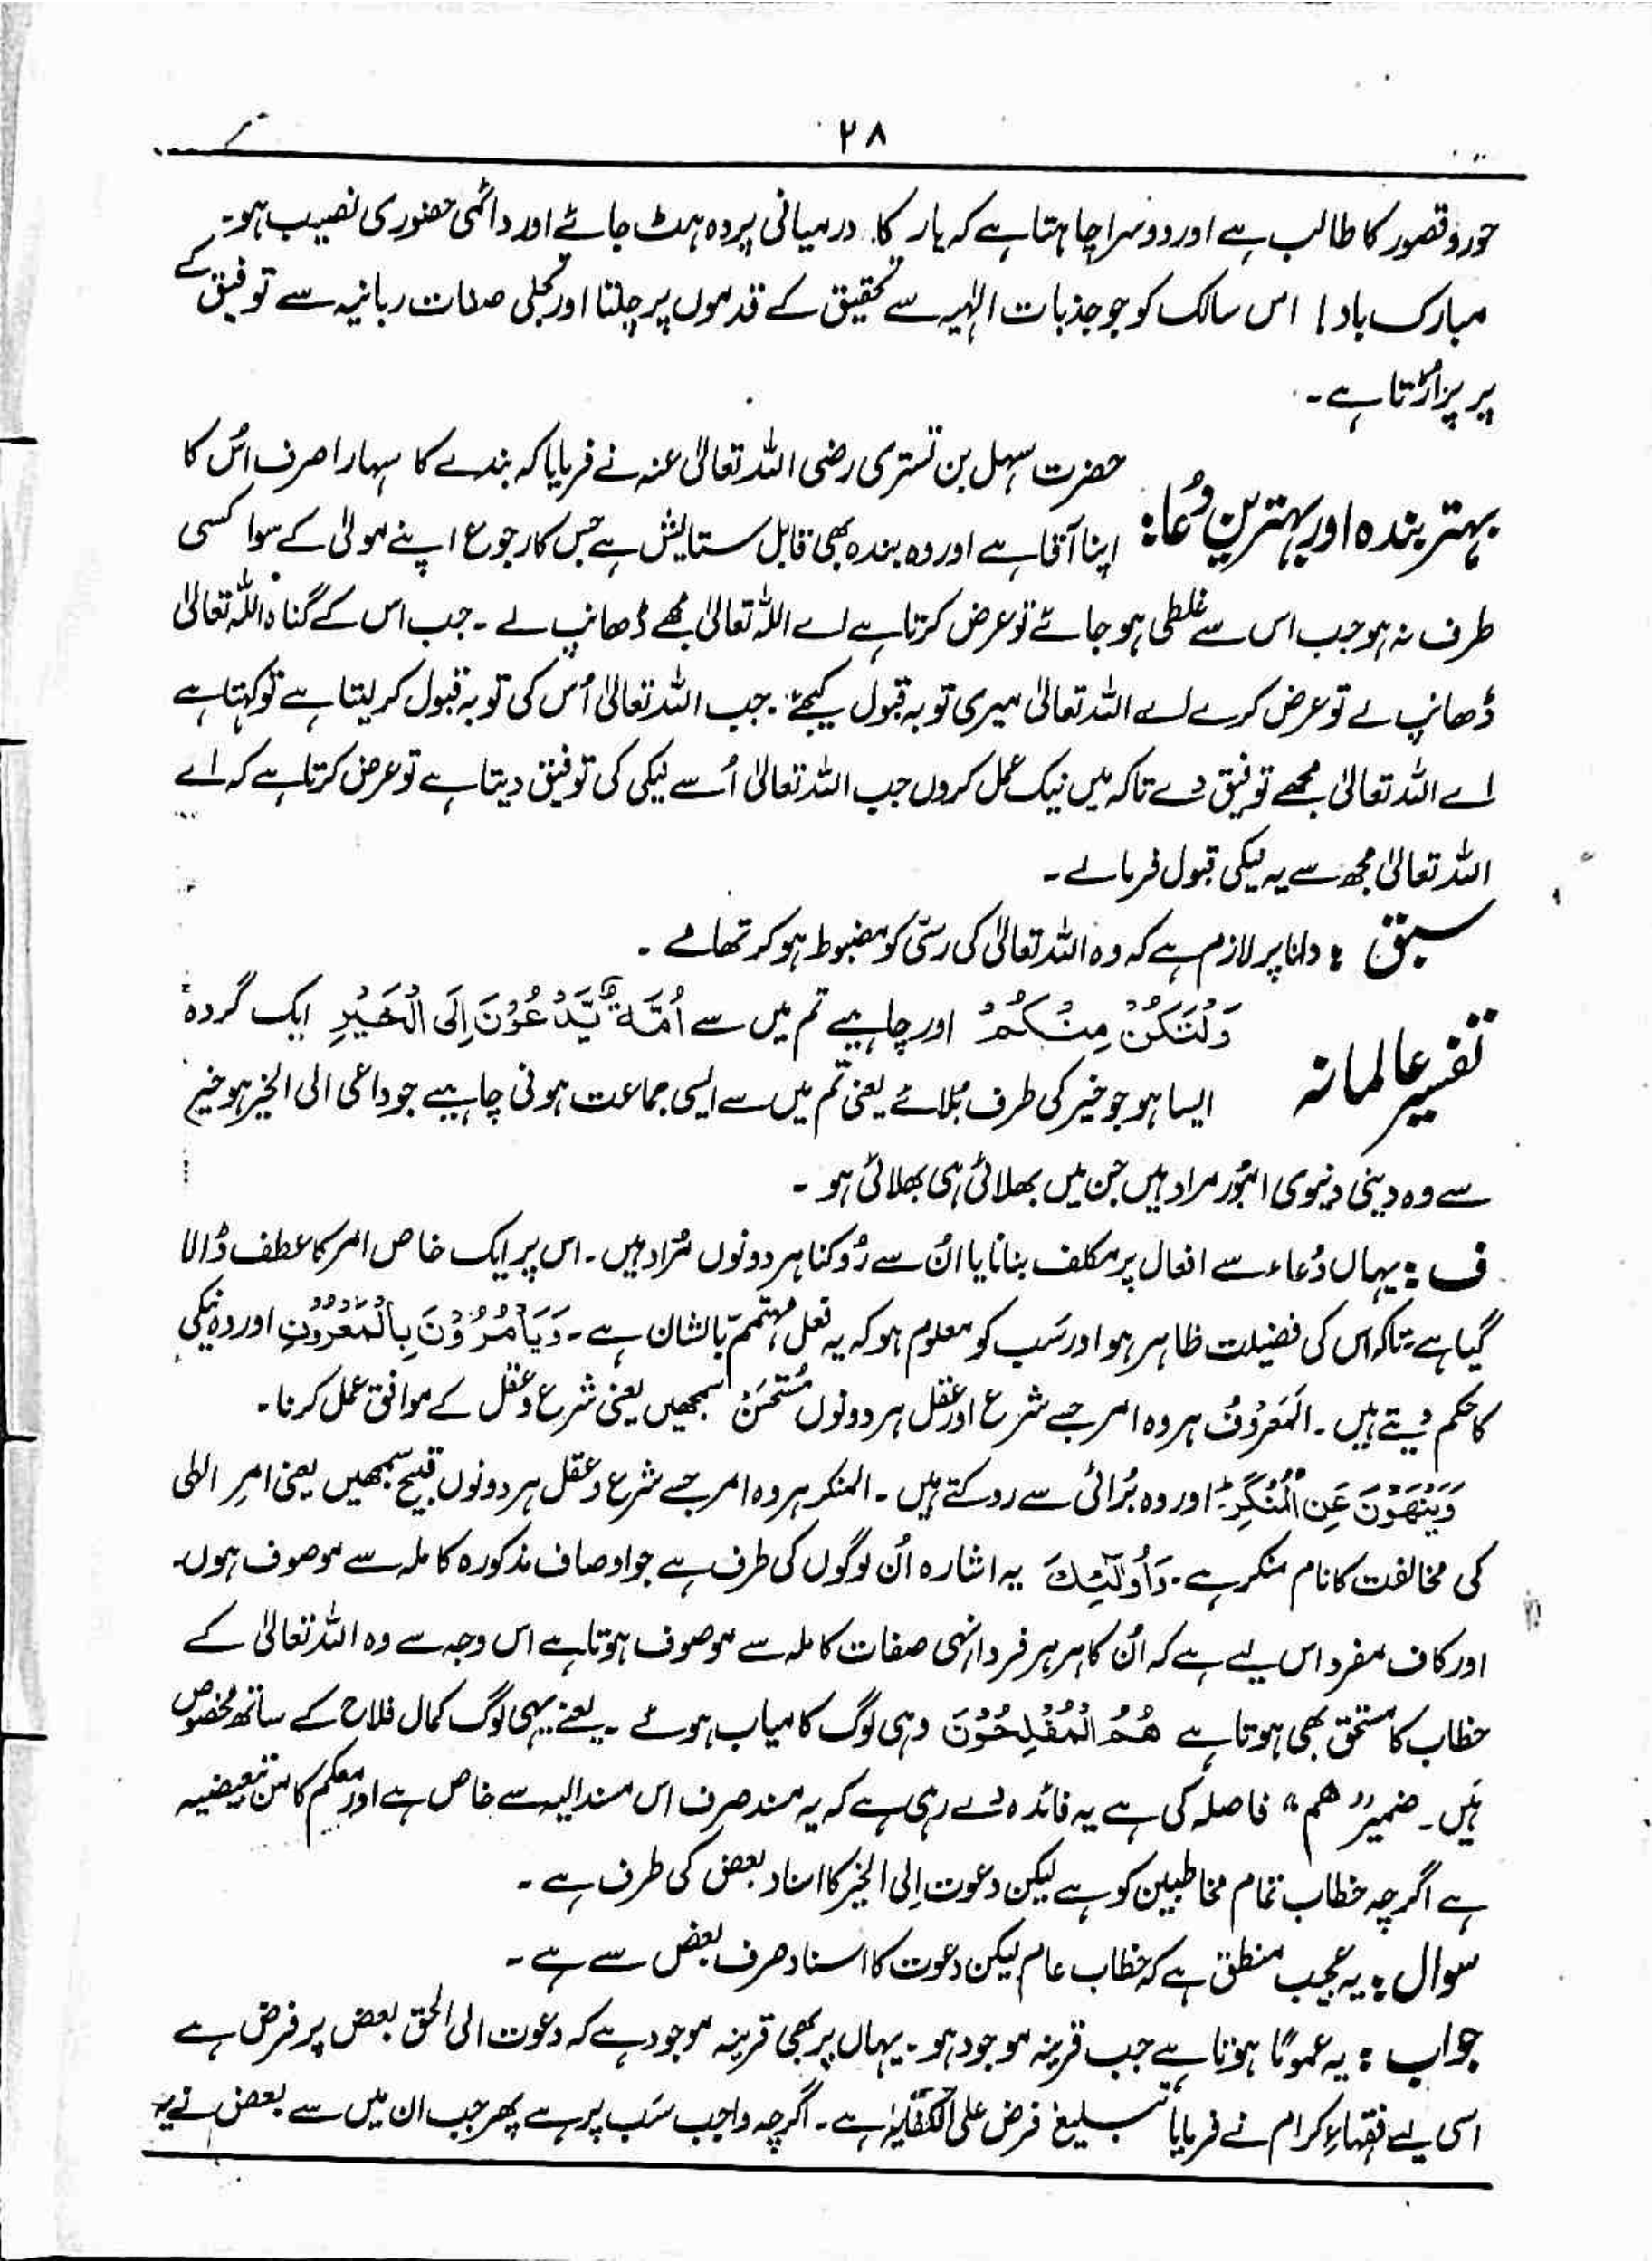 ۲۸
حور و قصور کا طالب ہے اور دوسرا چاہتا ہے کہ یار کا درمیانی پردہ ہٹ جائے اور دائمی حضوری نصیب ہو۔
مبارک باد! اس سالک کو جو جذبات الٰہیہ سے تحقیق کے قدموں پر چلتا اور تجلی صفات ربانیہ سے توفیق کے
پر پر اڑتا ہے۔
بہتر بندہ اور بہترین دُعا: حضرت سہل بن تستری رضی اللہ تعالیٰ عنہ نے فرمایا کہ بندے کا سہارا صرف اُس کا
اپنا آقا ہے اور وہ بندہ بھی قابل ستایش ہے جس کا رجوع اپنے مولیٰ کے سوا کسی
طرف نہ ہو جب اس سے غلطی ہو جائے تو عرض کرتا ہے اے اللہ تعالیٰ مجھے ڈھانپ لے۔ جب اس کے گناہ اللہ تعالیٰ
ڈھانپ لے تو عرض کرے اے اللہ تعالیٰ میری توبہ قبول کیجئے۔ جب اللہ تعالیٰ اُس کی توبہ قبول کر لیتا ہے تو کہتا ہے
اے اللہ تعالیٰ مجھے توفیق دے تاکہ میں نیک عمل کروں جب اللہ تعالیٰ اُسے نیکی کی توفیق دیتا ہے تو عرض کرتا ہے کہ اے
اللہ تعالیٰ مجھ سے یہ نیکی قبول فرمالے۔
سبق : دانا پر لازم ہے کہ وہ اللہ تعالیٰ کی رسّی کو مضبوط ہو کر تھامے۔
تفسیر عالمانہ وَلْتَكُنْ مِنْكُمْ اور چاہیے تم میں سے اُمَّةٌ يَّدْعُوْنَ اِلَى الْخَيْرِ ایک گروہ
ایسا ہو جو خیر کی طرف بُلائے یعنی تم میں سے ایسی جماعت ہونی چاہیے جو داعی الی الخیر ہو خیر
سے وہ دینی دنیوی امُور مراد ہیں جن میں بھلائی ہی بھلائی ہو۔
ف : یہاں دُعاء سے افعال پر مکلف بنانا یا اُن سے رُوکنا ہر دونوں مُراد ہیں۔ اس پر ایک خاص امر کا عطف ڈالا
گیا ہے تاکہ اس کی فضیلت ظاہر ہو اور سَب کو معلوم ہو کہ یہ فعل مہتمم بالشان ہے۔ وَيَاْمُرُوْنَ بِالْمَعْرُوْفِ اور وہ نیکی
کا حکم دیتے ہیں۔ اَلمَعرُوْفُ ہر وہ امر جسے شرع اور عقل ہر دونوں مُستحسَنْ سمجھیں یعنی شرع و عقل کے موافق عمل کرنا۔
وَيَنْهَوْنَ عَنِ الْمُنْكَرِ اور وہ بُرائی سے روکتے ہیں۔ المنکر ہر وہ امر جسے شرع و عقل ہر دونوں قبیح سمجھیں یعنی امرِ الٰہی
کی مخالفت کا نام منکر ہے۔ وَاُولٰٓئِكَ یہ اشارہ اُن لوگوں کی طرف ہے جو اوصاف مذکورہ کاملہ سے موصوف ہوں۔
اور کاف مفرد اس لیے ہے کہ اُن کا ہر ہر فرد انہی صفات کاملہ سے موصوف ہوتا ہے اس وجہ سے وہ اللہ تعالیٰ کے
خطاب کا مستحق بھی ہوتا ہے هُمُ الْمُفْلِحُوْنَ وہی لوگ کامیاب ہوئے۔ یعنے یہی لوگ کمال فلاح کے ساتھ مخصوص
ہَیں۔ ضمیر "ھم" فاصلہ کی ہے یہ فائدہ دے رہی ہے کہ یہ مسند صرف اس مسند الیہ سے خاص ہے اور منکم کا من تبعیضیہ
ہے اگرچہ خطاب تمام مخاطبین کو ہے لیکن دعوت اِلی الخیر کا اسناد بعض کی طرف ہے۔
سوال : یہ عجیب منطق ہے کہ خطاب عام لیکن دعوت کا اسناد صرف بعض سے ہے۔
جواب : یہ عمومًا ہوتا ہے جب قرینہ موجود ہو۔ یہاں پر بھی قرینہ موجود ہے کہ دعوت الی الحق بعض پر فرض ہے
اسی لیے فقہاءِ کرام نے فرمایا تبلیغ فرض علی الکفایہ ہے۔ اگرچہ واجب سَب پر ہے پھر جب ان میں سے بعض نے یہ